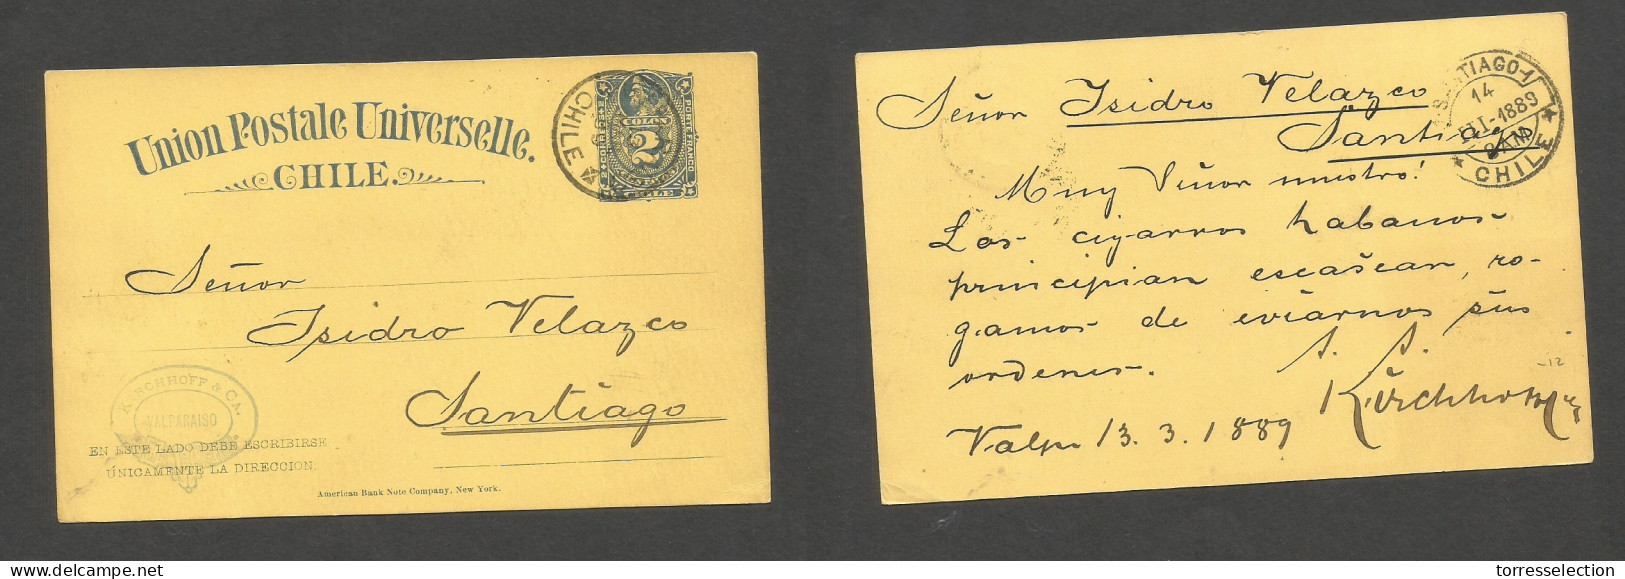 Union Postale Universelle.
CHILE.
CHILE
COLON
2
CENTAVOS
CHILE
PORTE FRANCO
Señor
Isidro Velazco
Santiago
KIRCHHOFF & CA.
VALPARAISO
EN ESTE LADO DEBE ESCRIBIRSE
ÚNICAMENTE LA DIRECCION.
American Bank Note Company, New York.
Señor Isidro Velazco
Santiago
SANTIAGO-1
14
III-1889
8 AM
CHILE
Muy Señor nuestro!
Los cigarros habanos
principian escasear, ro-
gamos de eviarnos sus
ordenes.
Kirchhoff
-12
Valp 13.3.1889
torresselection